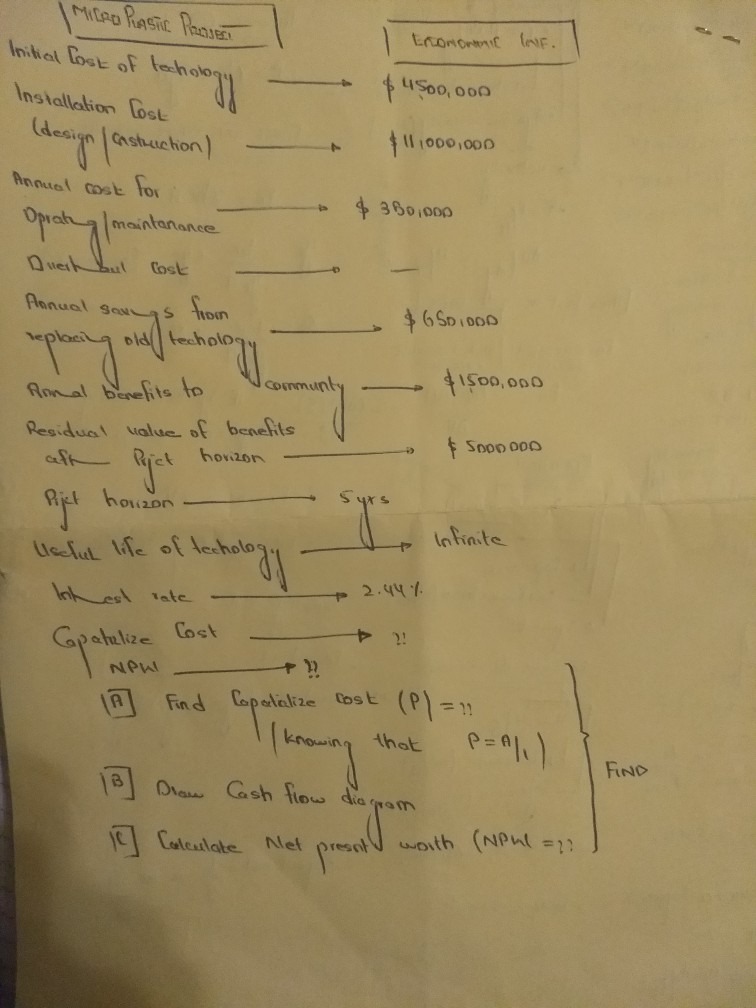 MICRO PLASTIC PROJECT
ECONOMIC INF.
Initial Cost of techology → $4500,000
Installation Cost
(design/constuction) → $11,000,000
Annual cost for
Oprating/maintanance → $ 380,000
Overhaul cost → —
Annual savings from
replacing old techology → $650,000
Annual benefits to community → $1500,000
Residual value of benefits
after Project horizon → $ 5000000
Project horizon → 5yrs
Useful life of techology → Infinite
Interest rate → 2.44%
Capatalize Cost → ??
NPW → ??
[A] Find Capatalize cost (P) = ??
(knowing that P = A/i)
[B] Draw Cash flow diagram
[C] Calculate Net present worth (NPW = ??
FIND